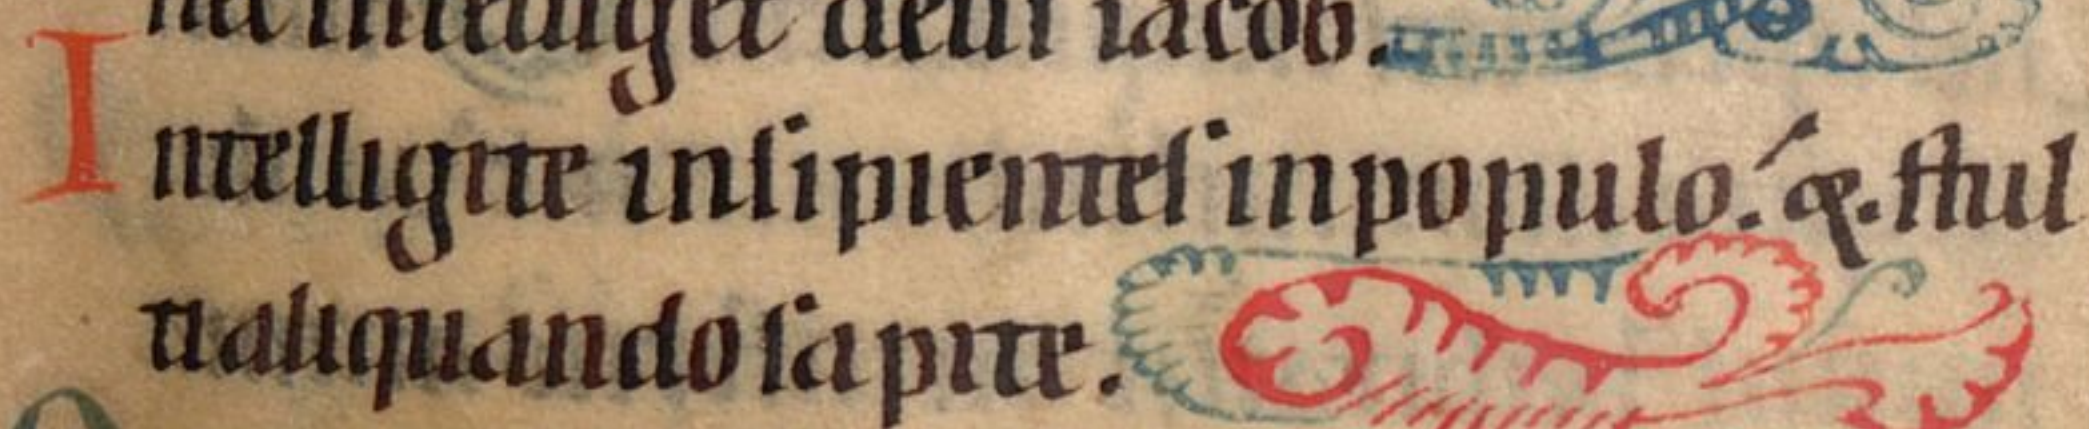 nec intelliget deus iacob.
Intelligite insipientes inpopulo. &. stul
ti aliquando sapite.